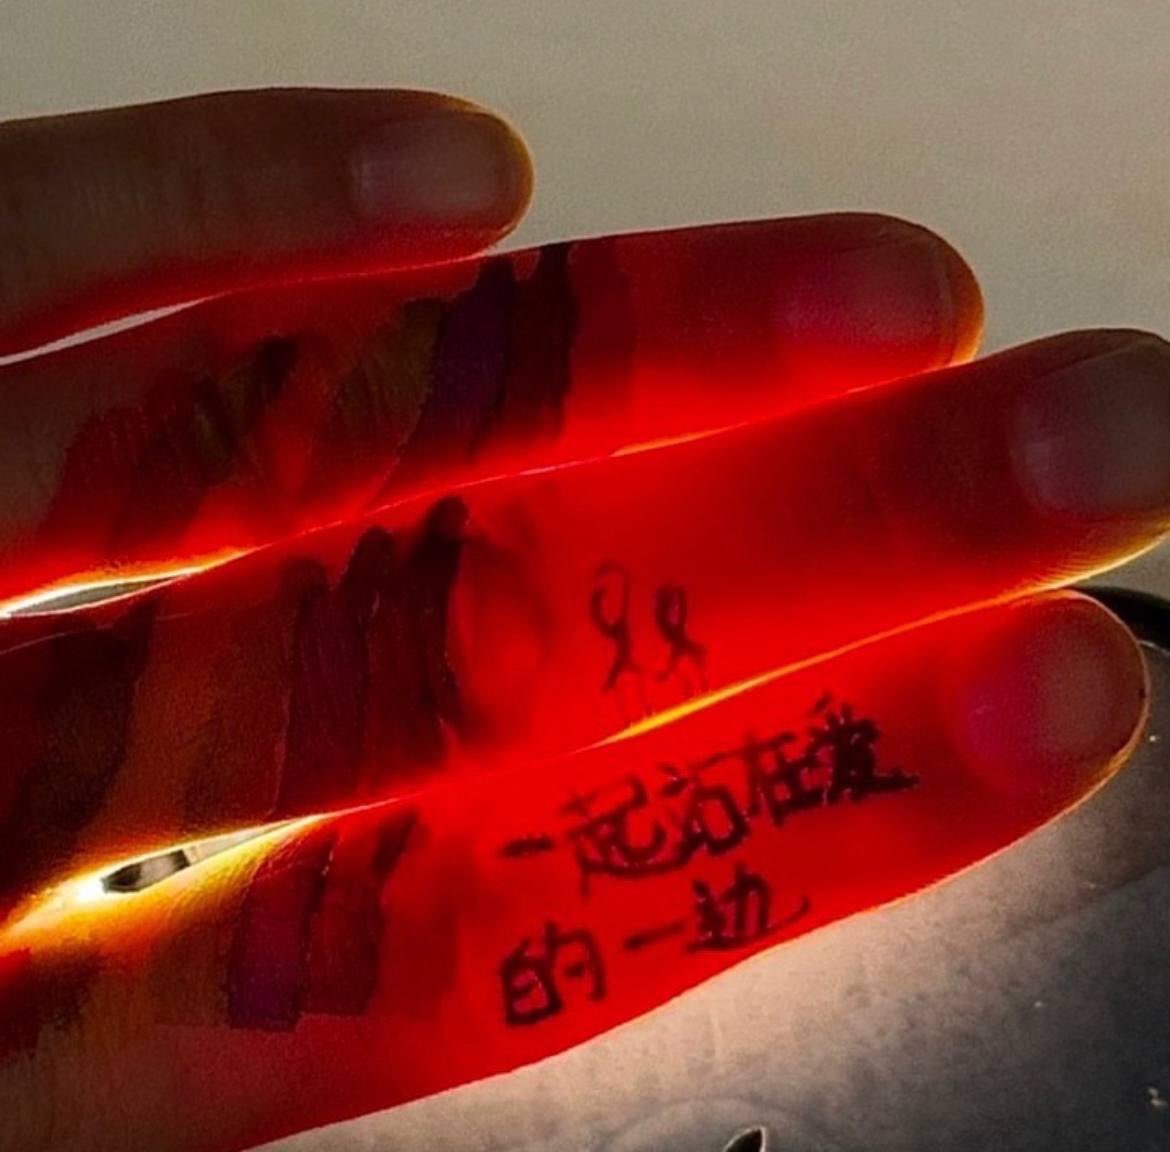 一起站在爱
的一边